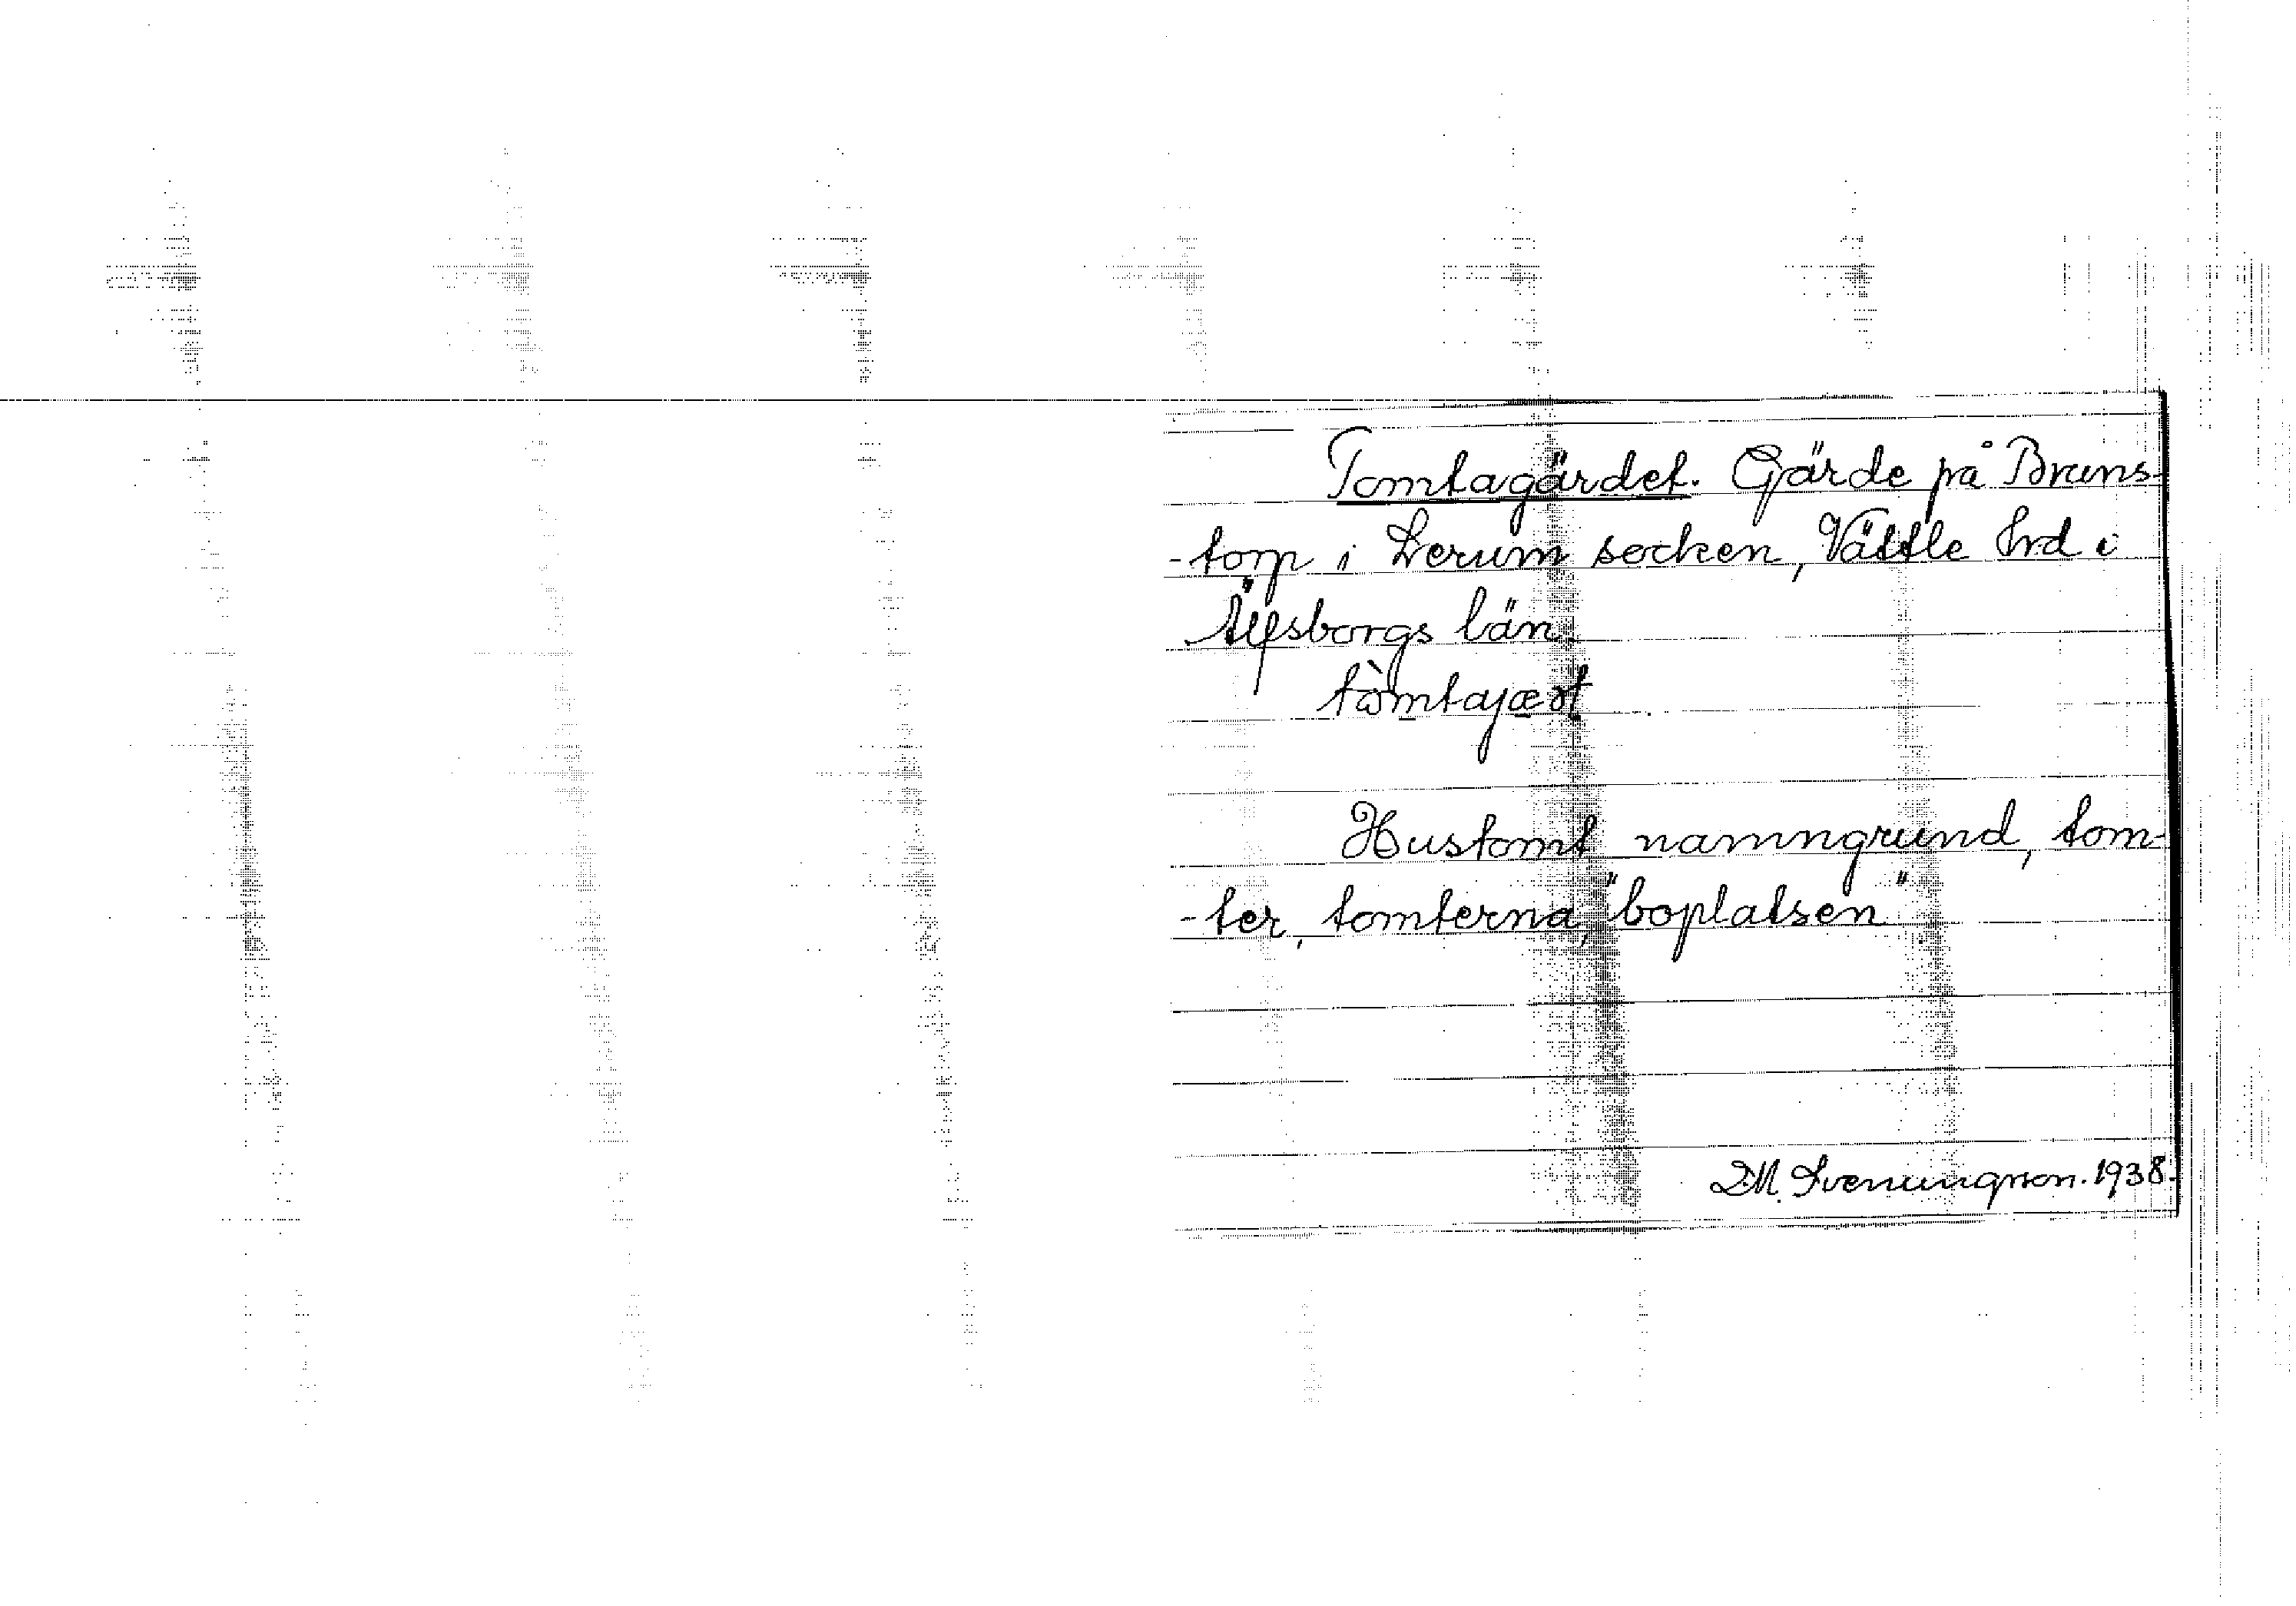 Tomtagärdet. Gärde på Bruns-
-torp i Lerum socken, Vättle Hrd i
Älfsborgs län.
tòmtajæṛt
Hustomt namngrund, tom-
-ter, tomterna, "boplatsen"
D.M. Svenungsson. 1938.